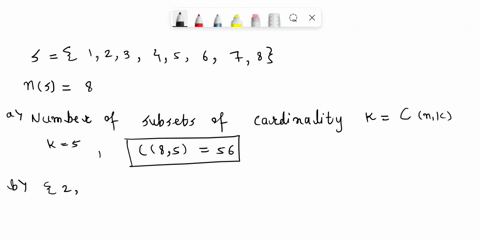 S = { 1, 2, 3 , 4, 5 , 6 , 7, 8 }
n(s) = 8
a) Number of subsets of cardinality K = C (n,k)
K = 5 , C(8,5) = 56
b) { 2,